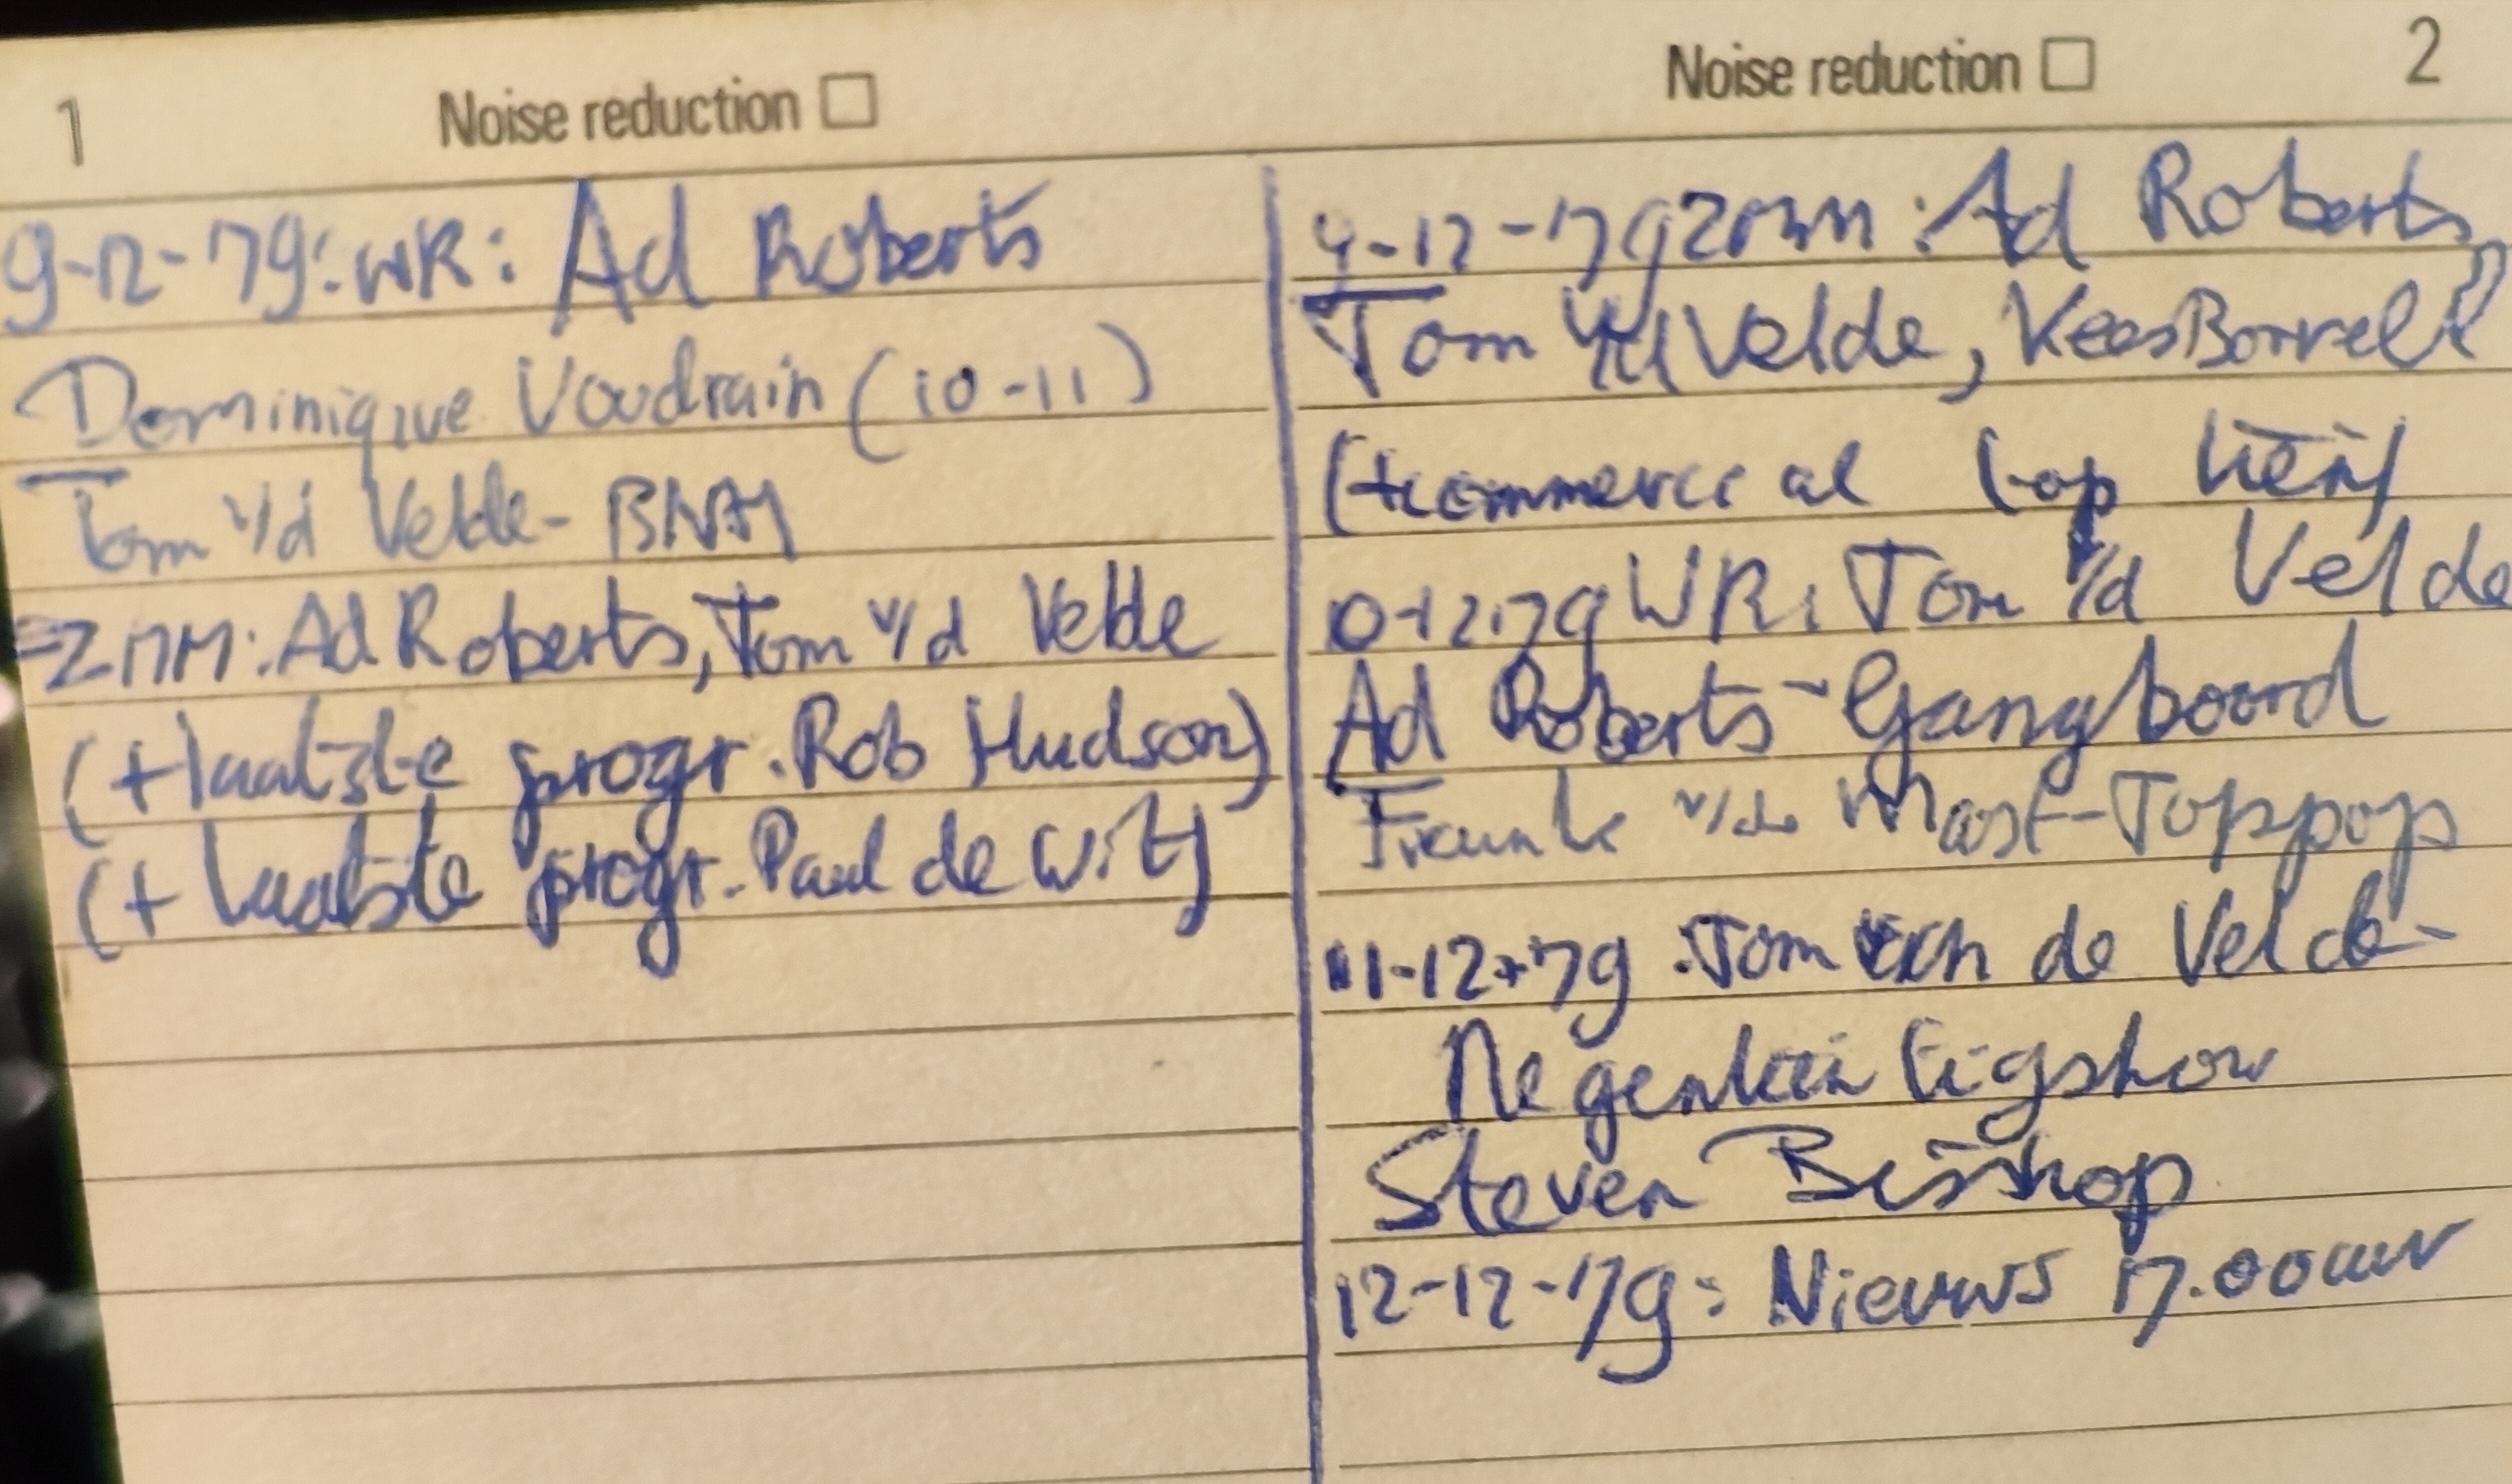 1 Noise reduction
9-12-79: WR: Ad Roberts
Dominique Voudrain (10-11)
Tom v/d Velde -
=ZMM: Ad Roberts, Tom v/d Velde
(+laatste progr. Rob Hudson)
(+ laatste progr. Paul de Wit)
Noise reduction 2
9-12-79 : Ad Roberts,
Tom v/d Velde, Kees Borrell
(+commercial
10-12-79 WR: Tom v/d Velde
Ad Roberts - Gangboord
Frank v/d Mast - Toppop
11-12-79 Tom van de Velde -
Negentwintigshow
Steven Bisshop
12-12-79: Nieuws 17.00 uur